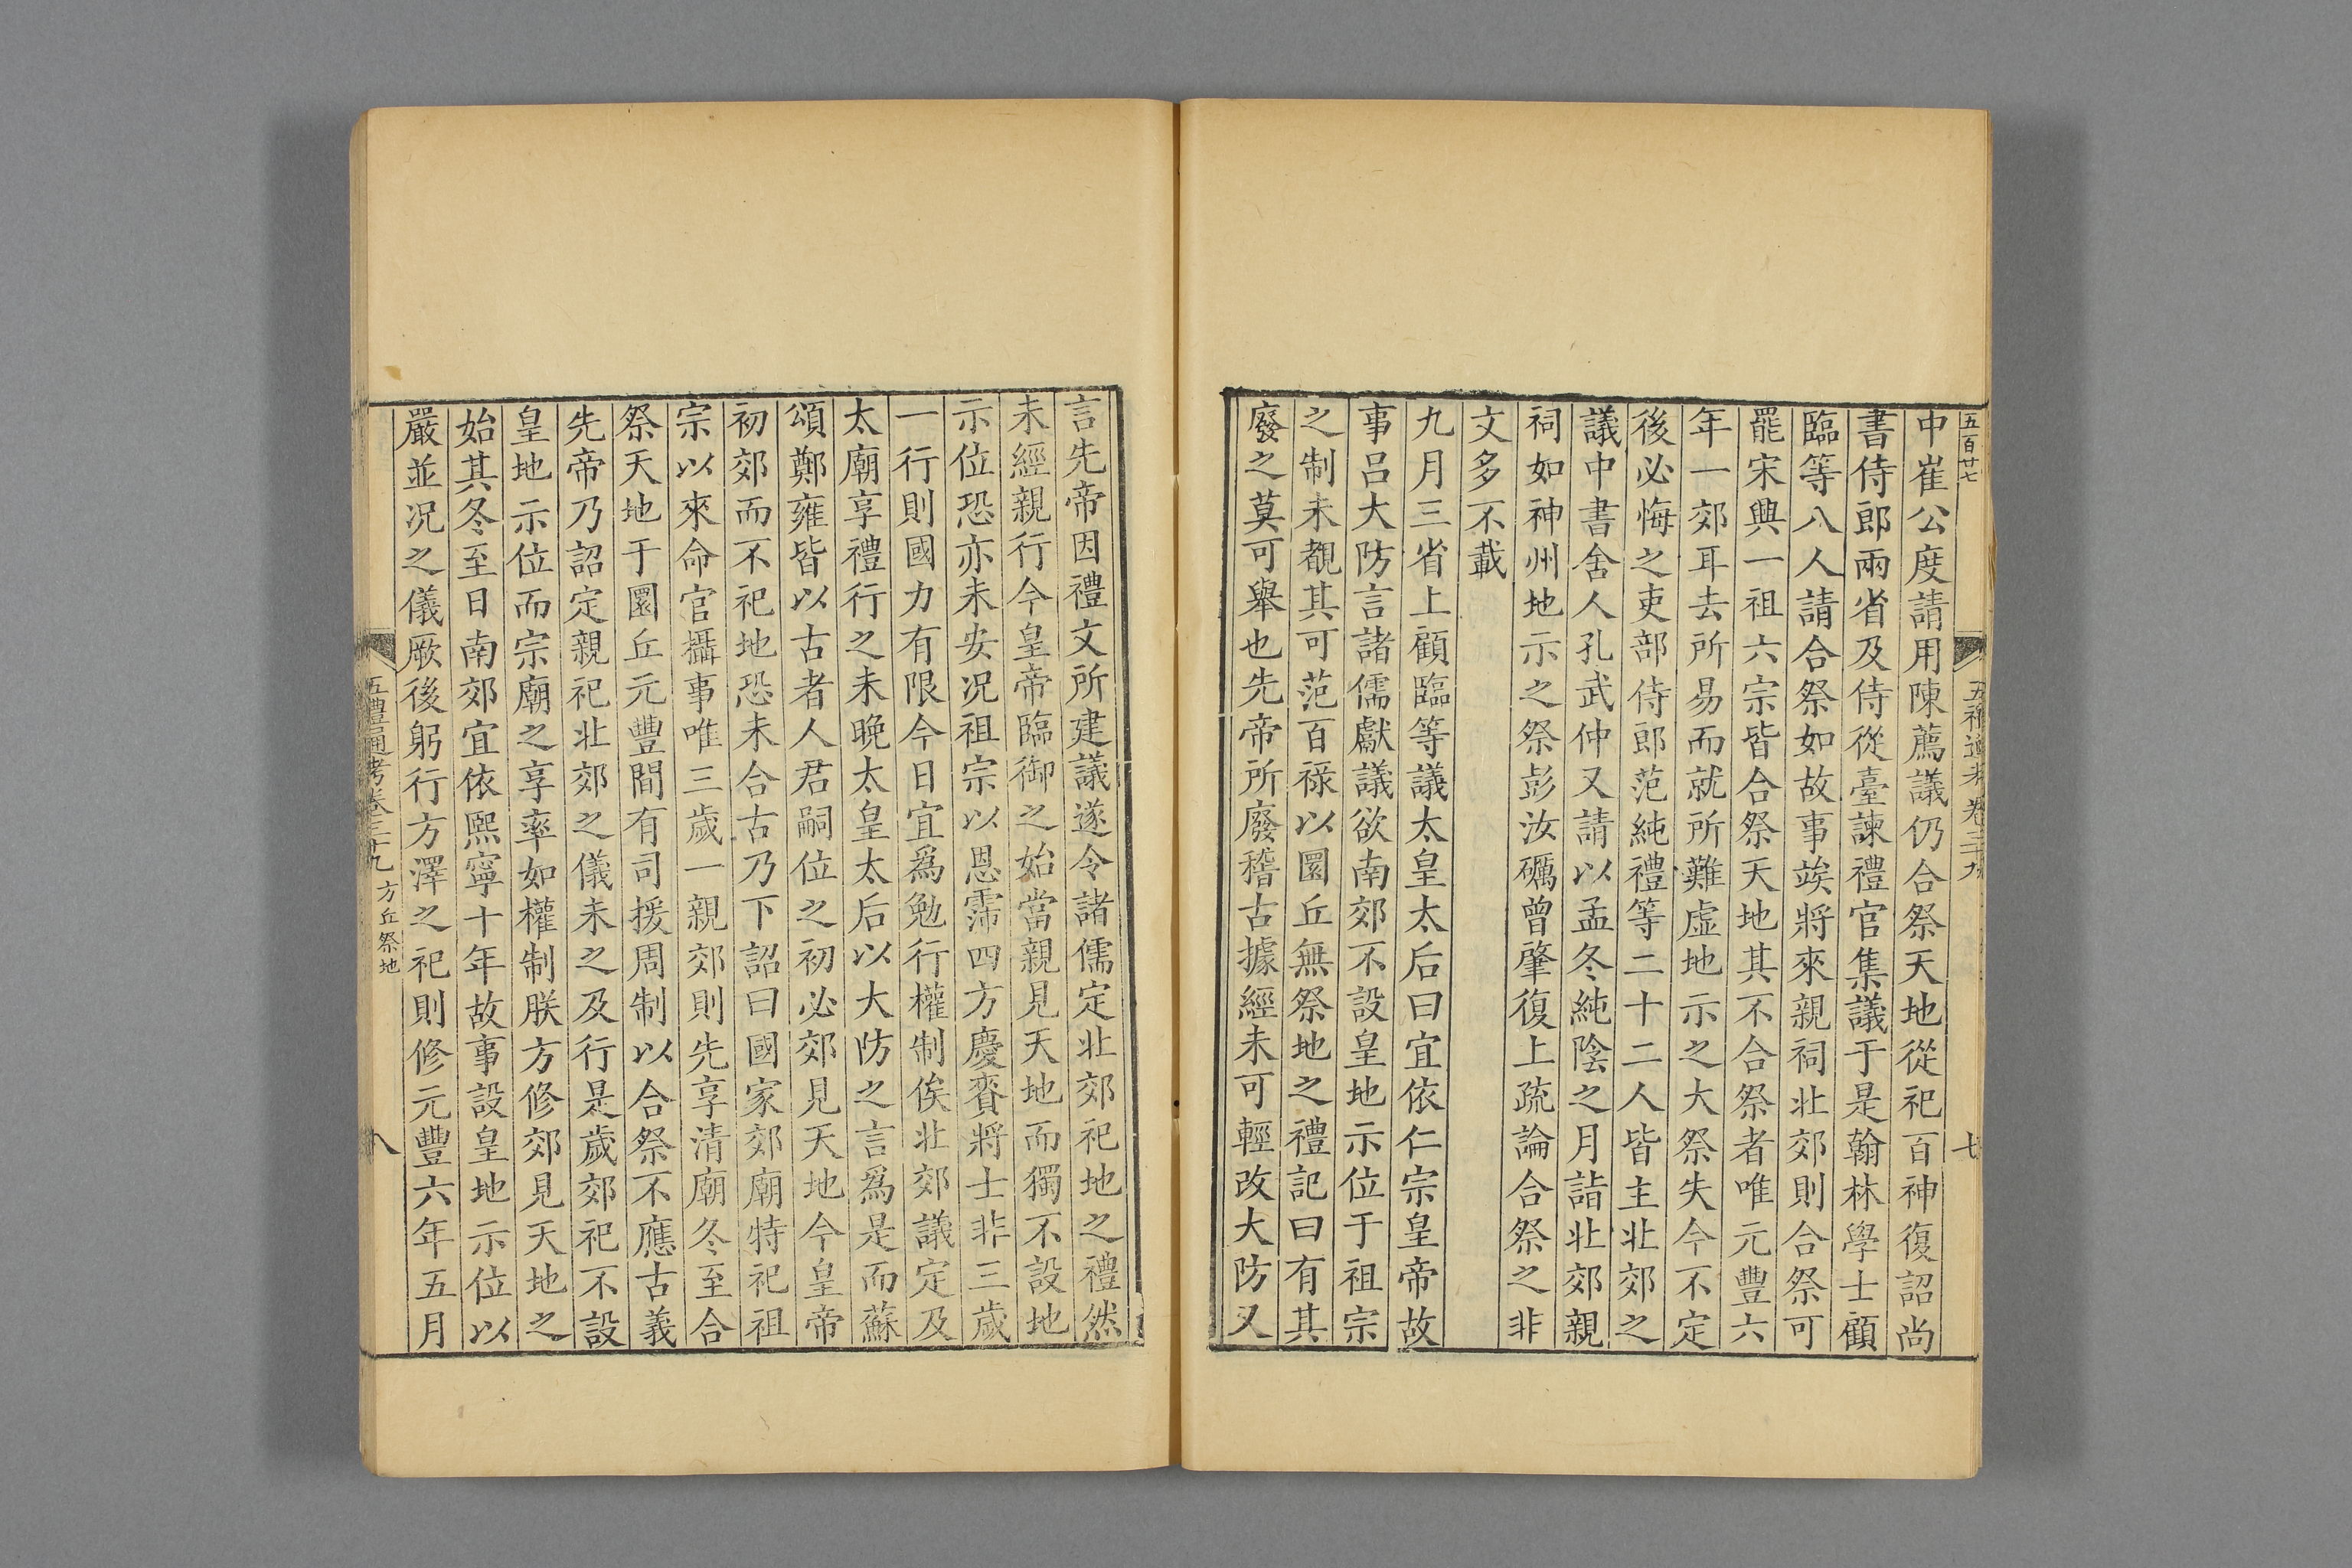 五百廿七
五禮通考卷三十九
七
中崔公度請用陳薦議仍合祭天地從祀百神復詔尚
書侍郎兩省及侍從臺諫禮官集議于是翰林學士顧
臨等八人請合祭如故事竢將來親祠北郊則合祭可
罷宋興一祖六宗皆合祭天地其不合祭者唯元豐六
年一郊耳去所易而就所難虛地示之大祭失今不定
後必悔之吏部侍郎范純禮等二十二人皆主北郊之
議中書舍人孔武仲又請以孟冬純陰之月詣北郊親
祠如神州地示之祭彭汝礪曾肇復上疏論合祭之非
文多不載
九月三省上顧臨等議太皇太后曰宜依仁宗皇帝故
事呂大防言諸儒獻議欲南郊不設皇地示位于祖宗
之制未覩其可范百祿以圜丘無祭地之禮記曰有其
廢之莫可舉也先帝所廢稽古據經未可輕改大防又
言先帝因禮文所建議遂令諸儒定北郊祀地之禮然
未經親行今皇帝臨御之始當親見天地而獨不設地
示位恐亦未安況祖宗以恩霈四方慶賚將士非三歲
一行則國力有限今日宜爲勉行權制俟北郊議定及
太廟享禮行之未晚太皇太后以大防之言爲是而蘇
頌鄭雍皆以古者人君嗣位之初必郊見天地今皇帝
初郊而不祀地恐未合古乃下詔曰國家郊廟特祀祖
宗以來命官攝事唯三歲一親郊則先享清廟冬至合
祭天地于圜丘元豐間有司援周制以合祭不應古義
先帝乃詔定親祀北郊之儀未之及行是歲郊祀不設
皇地示位而宗廟之享率如權制朕方修郊見天地之
始其冬至日南郊宜依熙寧十年故事設皇地示位以
嚴並況之儀厥後躬行方澤之祀則修元豐六年五月
五禮通考卷三十九 方丘祭地
八